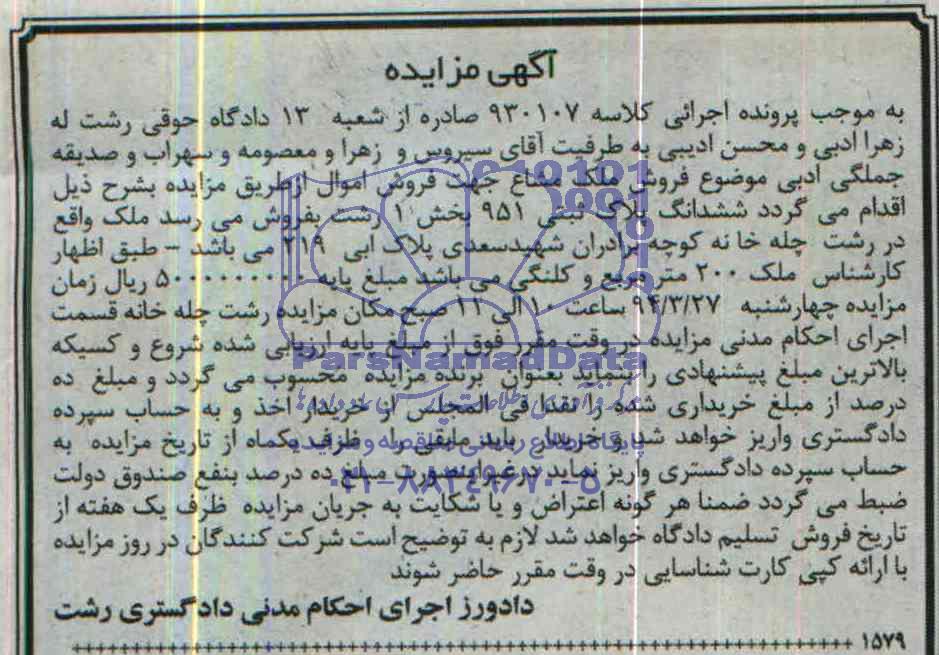 آگهی مزایده
به موجب پرونده اجرائی کلاسه ۹۳۰۱۰۷ صادره از شعبه ۱۳ دادگاه حوقی رشت له
زهرا ادبی و محسن ادیبی به طرفیت آقای سیروس و زهرا و معصومه و سهراب و صدیقه
جملگی ادبی موضوع فروش ملک مشاع جهت فروش اموال ازطریق مزایده بشرح ذیل
اقدام می گردد ششدانگ پلاک ثبتی ۹۵۱ بخش ۱ رشت بفروش می رسد ملک واقع
در رشت چله خا نه کوچه برادران شهیدسعدی پلاک ابی ۲۱۹ می باشد – طبق اظهار
کارشناس ملک ۲۰۰ متر مربع و کلنگی می باشد مبلغ پایه ۵۰۰۰۰۰۰۰۰۰۰ ریال زمان
مزایده چهارشنبه ۹۴/۳/۲۷ ساعت ۱۰ الی ۱۱ صبح مکان مزایده رشت چله خانه قسمت
اجرای احکام مدنی مزایده در وقت مقرر فوق از مبلغ پایه ارزیابی شده شروع و کسیکه
بالاترین مبلغ پیشنهادی را بنماید بعنوان برنده مزایده محسوب می گردد و مبلغ ده
درصد از مبلغ خریداری شده را نقدا فی المجلس از خریدار اخذ و به حساب سپرده
دادگستری واریز خواهد شد و خریدار باید مابقی را ظرف یکماه از تاریخ مزایده به
حساب سپرده دادگستری واریز نماید درغیراینصورت مبلغ ده درصد بنفع صندوق دولت
ضبط می گردد ضمنا هر گونه اعتراض و یا شکایت به جریان مزایده ظرف یک هفته از
تاریخ فروش تسلیم دادگاه خواهد شد لازم به توضیح است شرکت کنندگان در روز مزایده
با ارائه کپی کارت شناسایی در وقت مقرر حاضر شوند
دادورز اجرای احکام مدنی دادگستری رشت
۱۵۷۹
ParsNamadData
۰۲۱-۸۸۳۴۹۶۷۰-۵